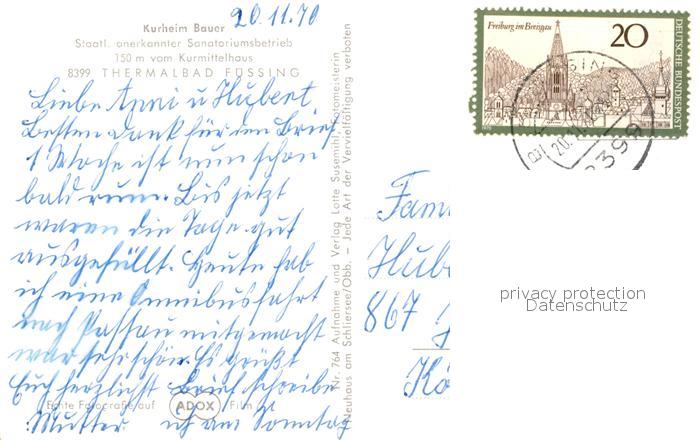 20.11.70
Kurheim Bauer
Staatl. anerkannter Sanatoriumsbetrieb
150 m vom Kurmittelhaus
8399 THERMALBAD FÜSSING
Liebe Anni u Hubert
Besten Dank für den Brief
1 Woche ist nun schon
bald rum. Bis jetzt
waren die Tage gut
ausgefüllt. Heute hab
ich eine Omnibusfahrt
nach Passau mitgemacht
war sehr schön. Es grüßt
Euch herzlichst Brief schreibe
Mutter ich am Sonntag
Echte Fotografie auf ADOX Film
Nr. 764 Aufnahme und Verlag Lotte Susemihl, Fotomeisterin
Neuhaus am Schliersee/Obb. – Jede Art der Vervielfältigung verboten
Freiburg im Breisgau
20
DEUTSCHE BUNDESPOST
20.11.
8399
Fam
Hub
867
Kö
privacy protection
Datenschutz